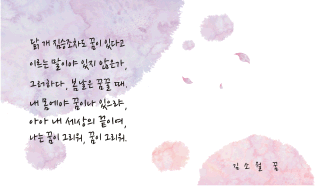 닭 개 짐승조차도 꿈이 있다고
이르는 말이야 있지 않은가,
그러하다, 봄날은 꿈꿀 때.
내 몸에야 꿈이나 있으랴,
아아 내 세상의 끝이여,
나는 꿈이 그리워, 꿈이 그리워.
김소월 꿈